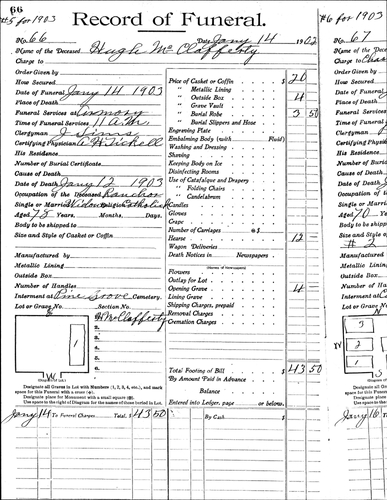 66
#5 for 1903
Record of Funeral.
#6 for 1903
No. 66 Date, Jany 14 1903
No. 67
Name of the Deceased Hugh McClafferty
Name of the
Charge to
Charge to
Order Given by
Order Given
How Secured
How Secured
Date of Funeral Jany 14 1903
Date of Funeral
Place of Death
Place of Death
Funeral Services at
Funeral Services
Time of Funeral Services 11 A.M.
Time of Funeral
Clergyman J Sims
Clergyman
Certifying Physician A H Tickell
Certifying
His Residence
His Residence
Number of Burial Certificate
Number of
Cause of Death
Cause of Death
Date of Death Jany 12 1903
Date of Death
Occupation of the Deceased Rancher
Occupation
Single or Married Widower Religion Catholic
Single or
Aged 78 Years, Months, Days
Aged 70 Years
Body to be shipped to
Body to be
Size and Style of Casket or Coffin
Size and Style
# 2
Manufactured by
Manufactured
Metallic Lining
Metallic Lining
Outside Box
Outside Box
Number of Handles
Number of
Interment at Pine Grove Cemetery.
Interment at
Lot or Grave No. Section No.
Lot or Grave
Price of Casket or Coffin $ 20
" Metallic Lining
" Outside Box 4
" Grave Vault
" Burial Robe 3 50
" Burial Slippers and Hose
Engraving Plate
Embalming Body (with Fluid)
Washing and Dressing
Shaving
Keeping Body on Ice
Disinfecting Rooms
Use of Catafalque and Drapery
" Folding Chairs
" Candelabrum
Candles
Gloves
Crape
Number of Carriages @ $
Hearse 12
Wagon Deliveries
Death Notices in Newspapers
(Names of newspapers)
Flowers
Outlay for Lot
Opening Grave 4
Lining Grave
Shipping Charges, prepaid
Removal Charges
Cremation Charges
Total Footing of Bill $ 43 50
By Amount Paid in Advance
Balance
Entered into Ledger, page or below.
1
1.
2.
3.
4.
5.
6.
McClafferty
W
(Diagram of Lot)
N
3
2
1
(Diagram of Lot)
Designate all Graves in Lot with Numbers (1, 2, 3, 4, etc.), and mark
space for this Funeral with a cross (+).
Designate place for Monument with a small square (□).
Use space to the right of Diagram for the names of those buried in Lot.
Jany 14 To Funeral Charges Total, $ 43 50
By Cash $
Jany 16